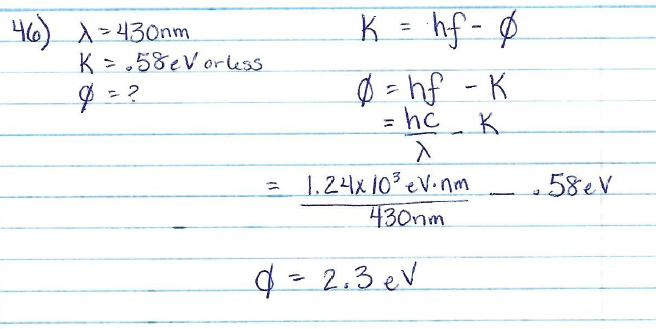 46) λ = 430nm
K = .58eV or less
φ = ?
K = hf - φ
φ = hf - K
= hc/λ - K
= 1.24x10³ eV·nm/430nm - .58eV
φ = 2.3 eV